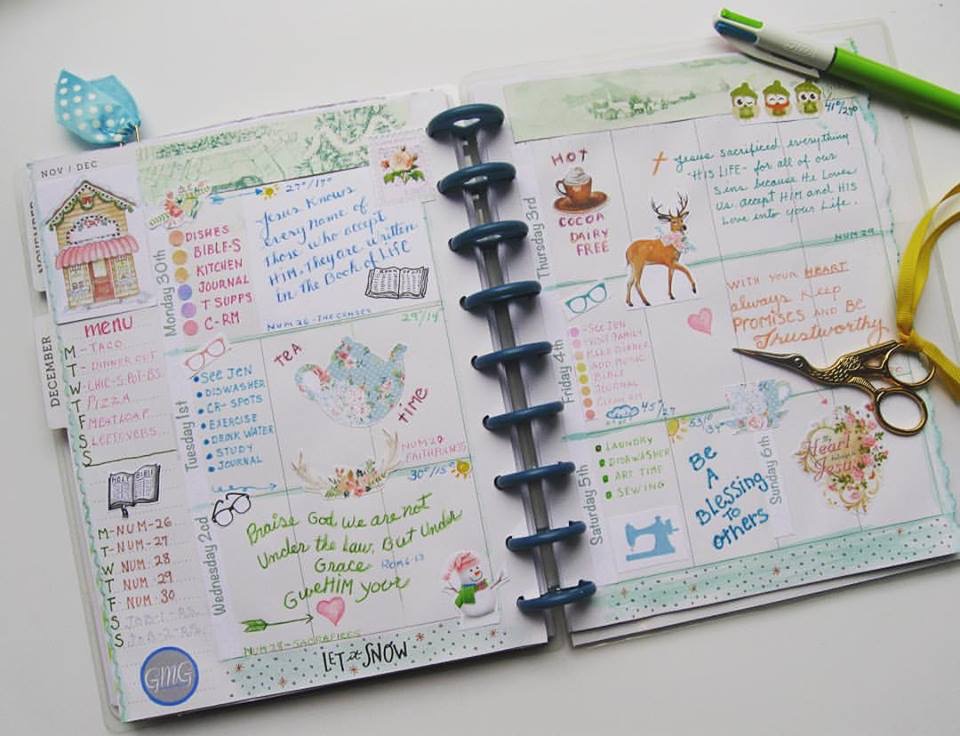 NOV / DEC
NOVEMBER
DECEMBER
menu
M -TACO
T -DINNER OUT
W -CHIC-S.POT-BS.
T PIZZA
F MEATLOAF
S LEFTOVERS
S
HOLY BIBLE
M-NUM-26
T-NUM-27
W NUM 28
T NUM 29
F NUM 30
S
S
GMG
Monday 30th
DISHES
BIBLE-S
KITCHEN
JOURNAL
T SUPPS
C-RM
27°/19°
Jesus Knows
every name of
Those who accept
HIM. They are written
in the Book of LIFE
NUM 26 -THE CENSES
Tuesday 1st
SEE JEN
DISWASHER
CR-SPOTS
EXERCISE
DRINK WATER
STUDY
JOURNAL
29/14
TEA
TIME
NUM 27
FAITHFULNESS
Wednesday 2nd
30°/15°
Praise God we are not
Under the Law, But Under
Grace Rom 6-13
Give HIM your
NUM 28-SACRAFICES
LET it SNOW
Thursday 3rd
HOT
COCOA
DAIRY
FREE
41°/29°
Jesus sacrificed everything
-HIS LIFE- for all of our
Sins because He Loves
Us. accept HIM and HIS
Love into your Life.
NUM 29
Friday 4th
-SEE JEN
BIBLE
JOURNAL
45°/27
WITH your HEART
always Keep
PROMISES and Be
Trustworthy
Saturday 5th
LAUNDRY
DISHWASHER
ART TIME
SEWING
53°/34°
Be
A
Blessing
To
others
Sunday 6th
My
Heart
belongs to
Jesus